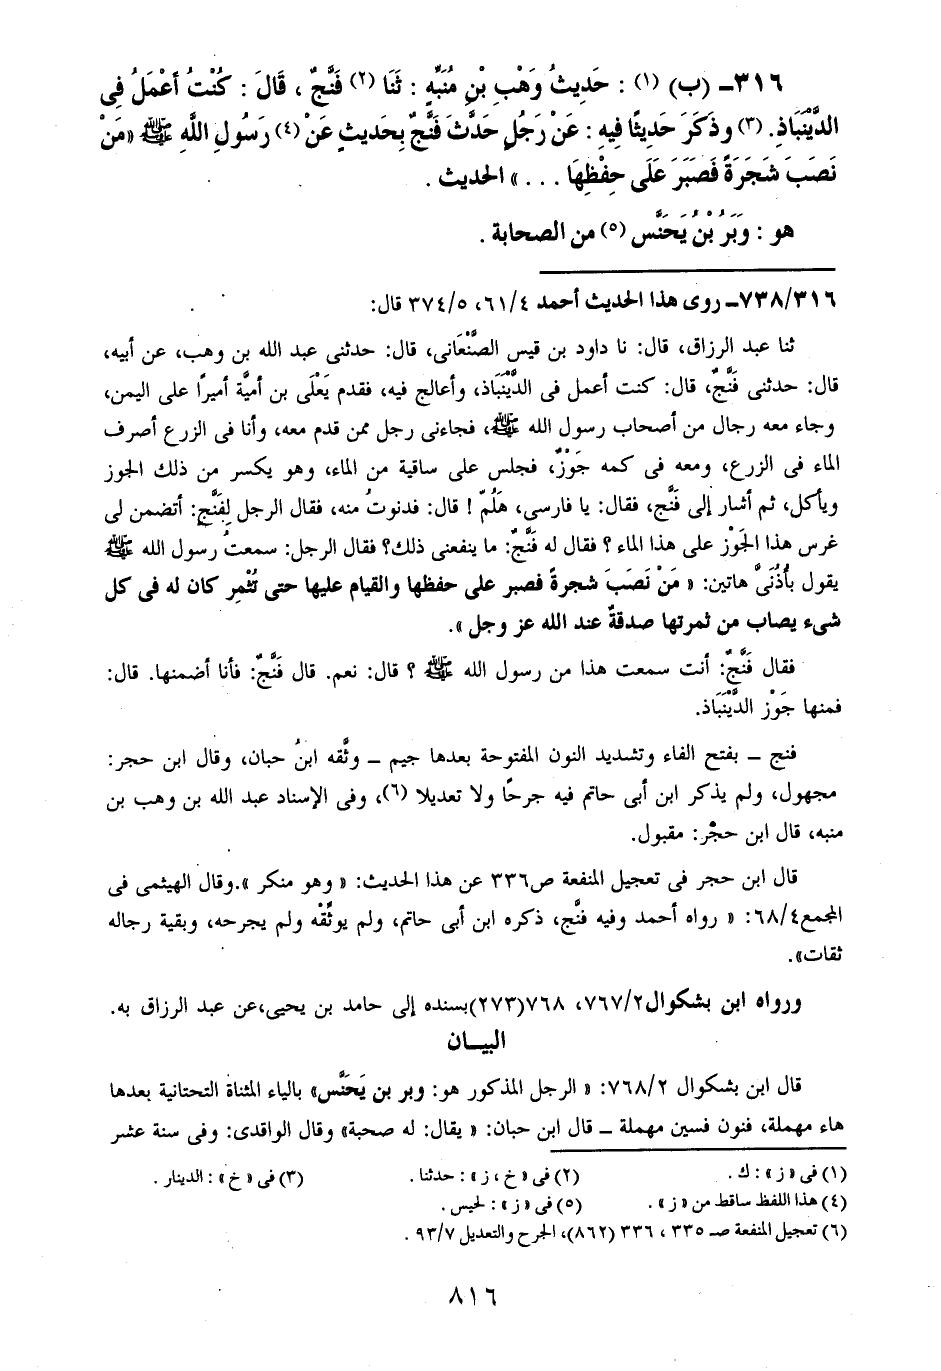 ٣١٦ـ (ب) (١) : حَدِيثُ وَهْبِ بْنِ مُنَبِّهٍ : ثَنَا (٢) فَنَّجٌ ، قَالَ : كُنْتُ أعْمَلُ فِى
الدَّيْنَبَاذِ. (٣) وذَكَرَ حَدِيثًا فِيهِ : عَنْ رَجُلٍ حَدَّثَ فَنَّجٌ بِحَدِيثٍ عَنْ (٤) رَسُولِ اللَّهِ ﷺ «مَنْ
نَصَبَ شَجَرَةً فَصَبَرَ عَلَى حِفْظِهَا . . . » الحديث .
هو : وَبَرُ بْنُ يَحَنَّس (٥) من الصحابة .
٧٣٨/٣١٦ـ روى هذا الحديث أحمد ٦١/٤، ٣٧٤/٥ قال:
ثنا عبد الرزاق، قال: نا داود بن قيس الصَّنْعَانى، قال: حدثنى عبد الله بن وهب، عن أبيه،
قال: حدثنى فَنَّجٌ، قال: كنت أعمل فى الدَّيْنَبَاذ، وأعالج فيه، فقدم يَعْلَى بن أميَّة أميرًا على اليمن،
وجاء معه رجال من أصحاب رسول الله ﷺ، فجاءنى رجل ممن قدم معه، وأنا فى الزرع أصرف
الماء فى الزرع، ومعه فى كمه جَوْزٌ، فجلس على ساقية من الماء، وهو يكسر من ذلك الجوز
ويأكل، ثم أشار إلى فَنَّج، فقال: يا فارسى، هَلُمّ ! قال: فدنوتُ منه، فقال الرجل لِفَنَّج: أتضمن لى
غرس هذا الجَوْز على هذا الماء ؟ فقال له فَنَّجٌ: ما ينفعنى ذلك؟ فقال الرجل: سمعتُ رسول الله ﷺ
يقول بأذُنَىَّ هاتين: « مَنْ نَصَبَ شجرةً فصبر على حفظها والقيام عليها حتى تُثْمِر كان له فى كل
شىء يصاب من ثمرتها صدقةٌ عند الله عز وجل ».
فقال فَنَّجٌ: أنت سمعت هذا من رسول الله ﷺ ؟ قال: نعم. قال فَنَّجٌ: فأنا أضمنها. قال:
فمنها جَوْز الدَّيْنَبَاذ.
فنج ـ بفتح الفاء وتشديد النون المفتوحة بعدها جيم ـ وثَّقه ابنُ حبان، وقال ابن حجر:
مجهول، ولم يذكر ابن أبى حاتم فيه جرحًا ولا تعديلا (٦)، وفى الإسناد عبد الله بن وهب بن
منبه، قال ابن حجْر: مقبول.
قال ابن حجر فى تعجيل المنفعة ص٣٣٦ عن هذا الحديث: « وهو منكر ».وقال الهيثمى فى
المجمع٦٨/٤: « رواه أحمد وفيه فنَّج، ذكره ابن أبى حاتم، ولم يوثِّقْه ولم يجرحه، وبقية رجاله
ثقات».
ورواه ابن بشكوال٧٦٧/٢، ٧٦٨ (٢٧٣)بسنده إلى حامد بن يحيى،عن عبد الرزاق به.
البيـــان
قال ابن بشكوال ٧٦٨/٢: « الرجل المذكور هو: وبر بن يَحَنَّس» بالياء المثناة التحتانية بعدها
هاء مهملة، فنون فسين مهملة ـ قال ابن حبان: « يقال: له صحبة» وقال الواقدى: وفى سنة عشر
(١) فى «ز» : ك . (٢) فى «خ ، ز» : حدثنا . (٣) فى «خ» : الدينار .
(٤) هذا اللفظ ساقط من «ز» . (٥) فى «ز» : لحيس .
(٦) تعجيل المنفعة صـ ٣٣٥ ، ٣٣٦ (٨٦٢)، الجرح والتعديل ٩٣/٧ .
٨١٦